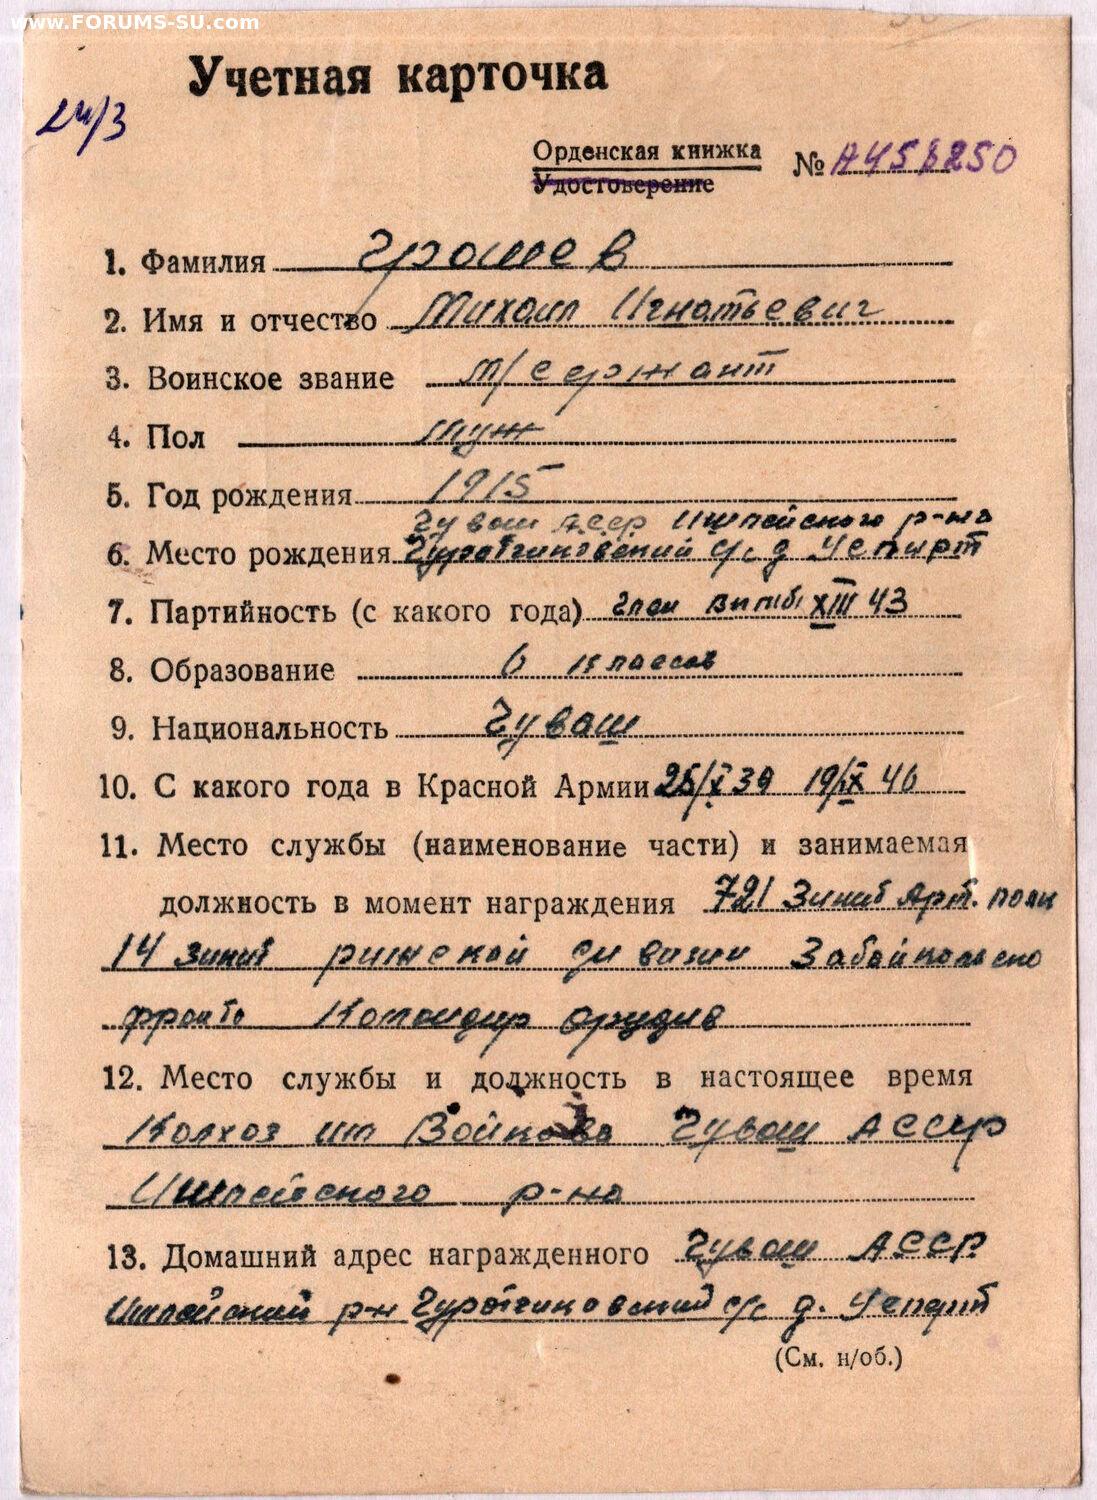 www.FORUMS-SU.com
Учетная карточка
24/3
Орденская книжка
Удостоверение
№ А458250
1. Фамилия Грошев
2. Имя и отчество Михаил Игнатьевич
3. Воинское звание м/сержант
4. Пол муж
5. Год рождения 1915
Чуваш АССР Ишлейского р-на
6. Место рождения с/с д
7. Партийность (с какого года) член вкпбі XIII 43
8. Образование 6 классов
9. Национальность Чуваш
10. С какого года в Красной Армии 25/X 39 19/IX 46
11. Место службы (наименование части) и занимаемая
должность в момент награждения 721 Зинит Арт. полк
14 зинит рижской дивизии Забайкальско
фронто Командир орудив
12. Место службы и должность в настоящее время
Колхоз им Войкова Чуваш АССР
Ишлейского р-на
13. Домашний адрес награжденного Чуваш АССР
Ишлейский р-н с/с д.
(См. н/об.)